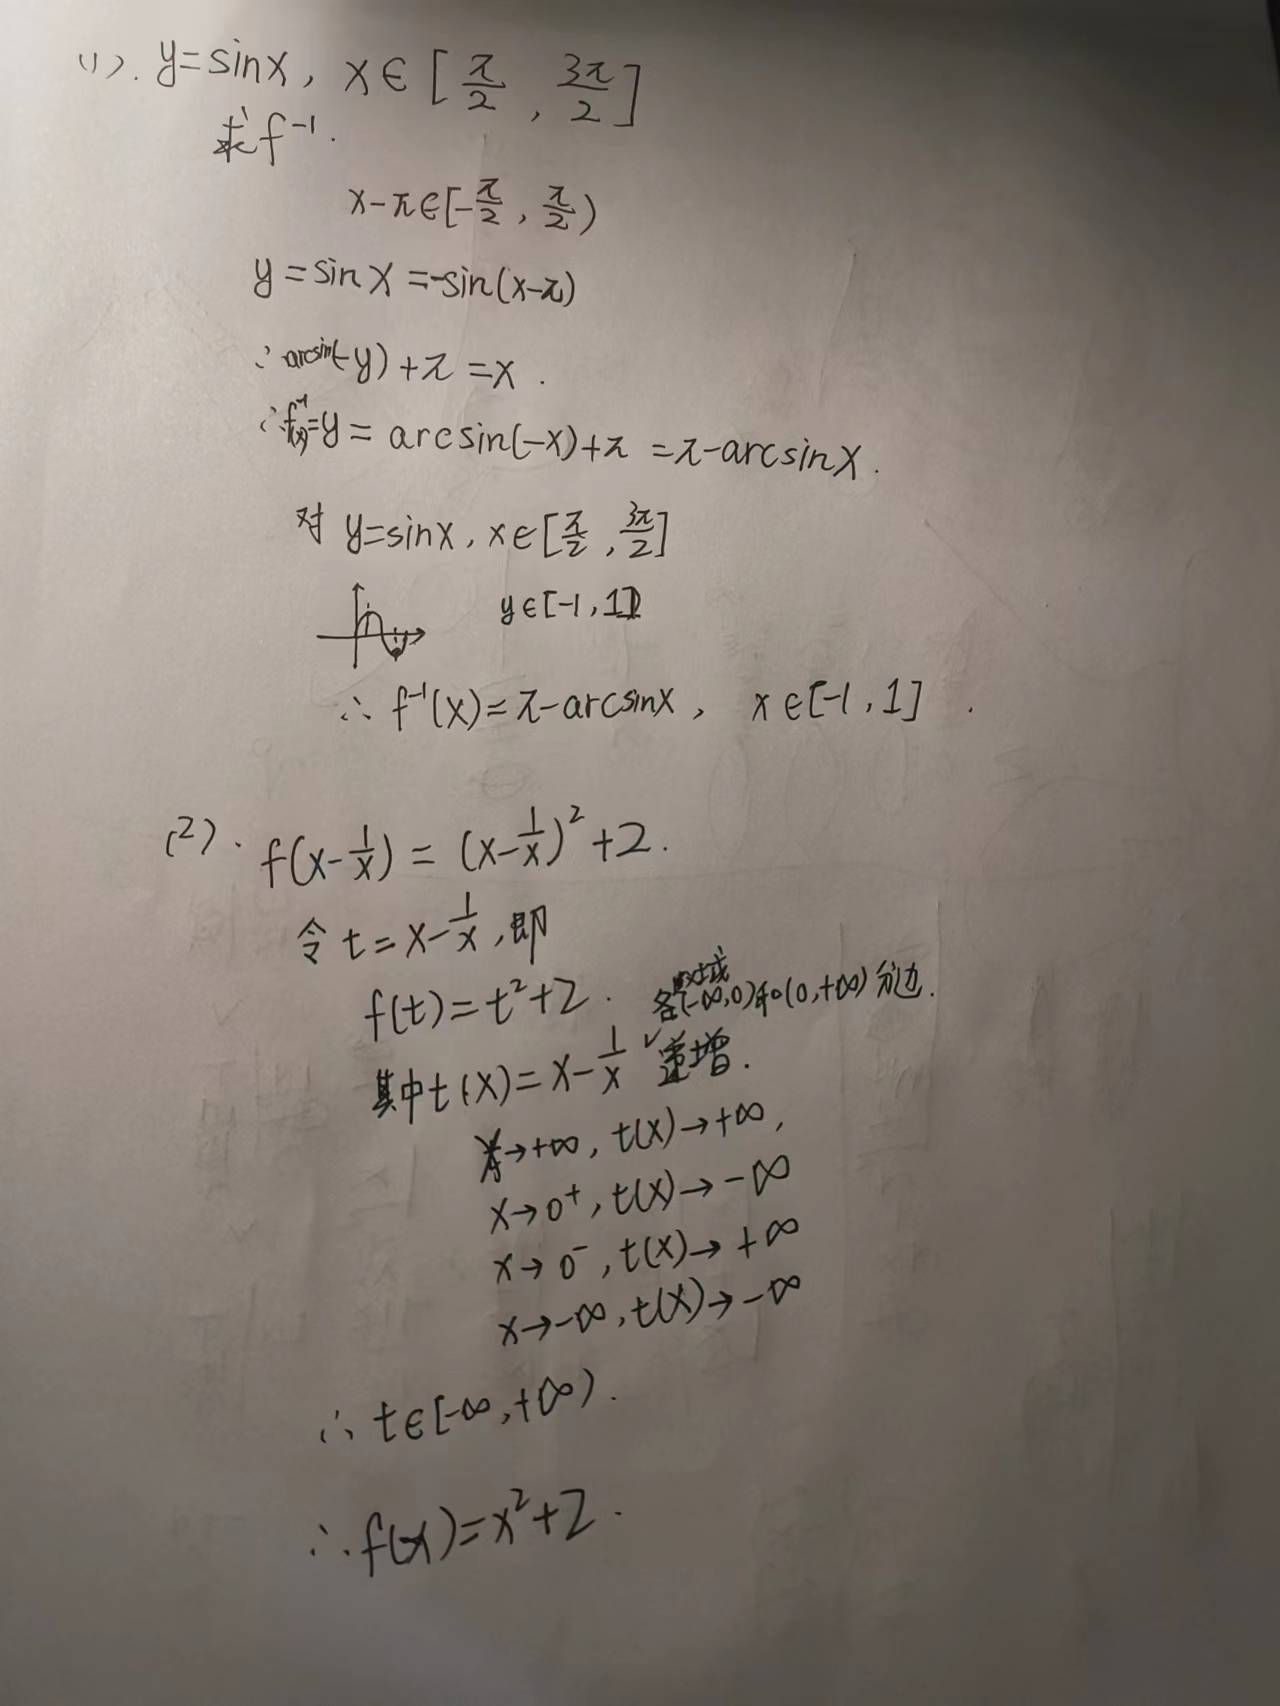 (1). y=sinx, x∈[π/2, 3π/2]
求f⁻¹.
x-π∈[-π/2, π/2)
y=sinx=-sin(x-π)
∴arcsin(-y)+π=x.
∴f⁻¹(x)=y=arcsin(-x)+π=π-arcsinx.
对 y=sinx, x∈[π/2, 3π/2]
y∈[-1,1]
∴ f⁻¹(x)=π-arcsinx, x∈[-1,1].
(2). f(x-1/x)=(x-1/x)²+2.
令t=x-1/x,即
f(t)=t²+2.
各(-∞,0)和(0,+∞)
其中t(x)=x-1/x 递增.
x→+∞, t(x)→+∞,
x→0⁺, t(x)→-∞
x→0⁻, t(x)→+∞
x→-∞, t(x)→-∞
∴ t∈[-∞,+∞).
∴f(x)=x²+2.